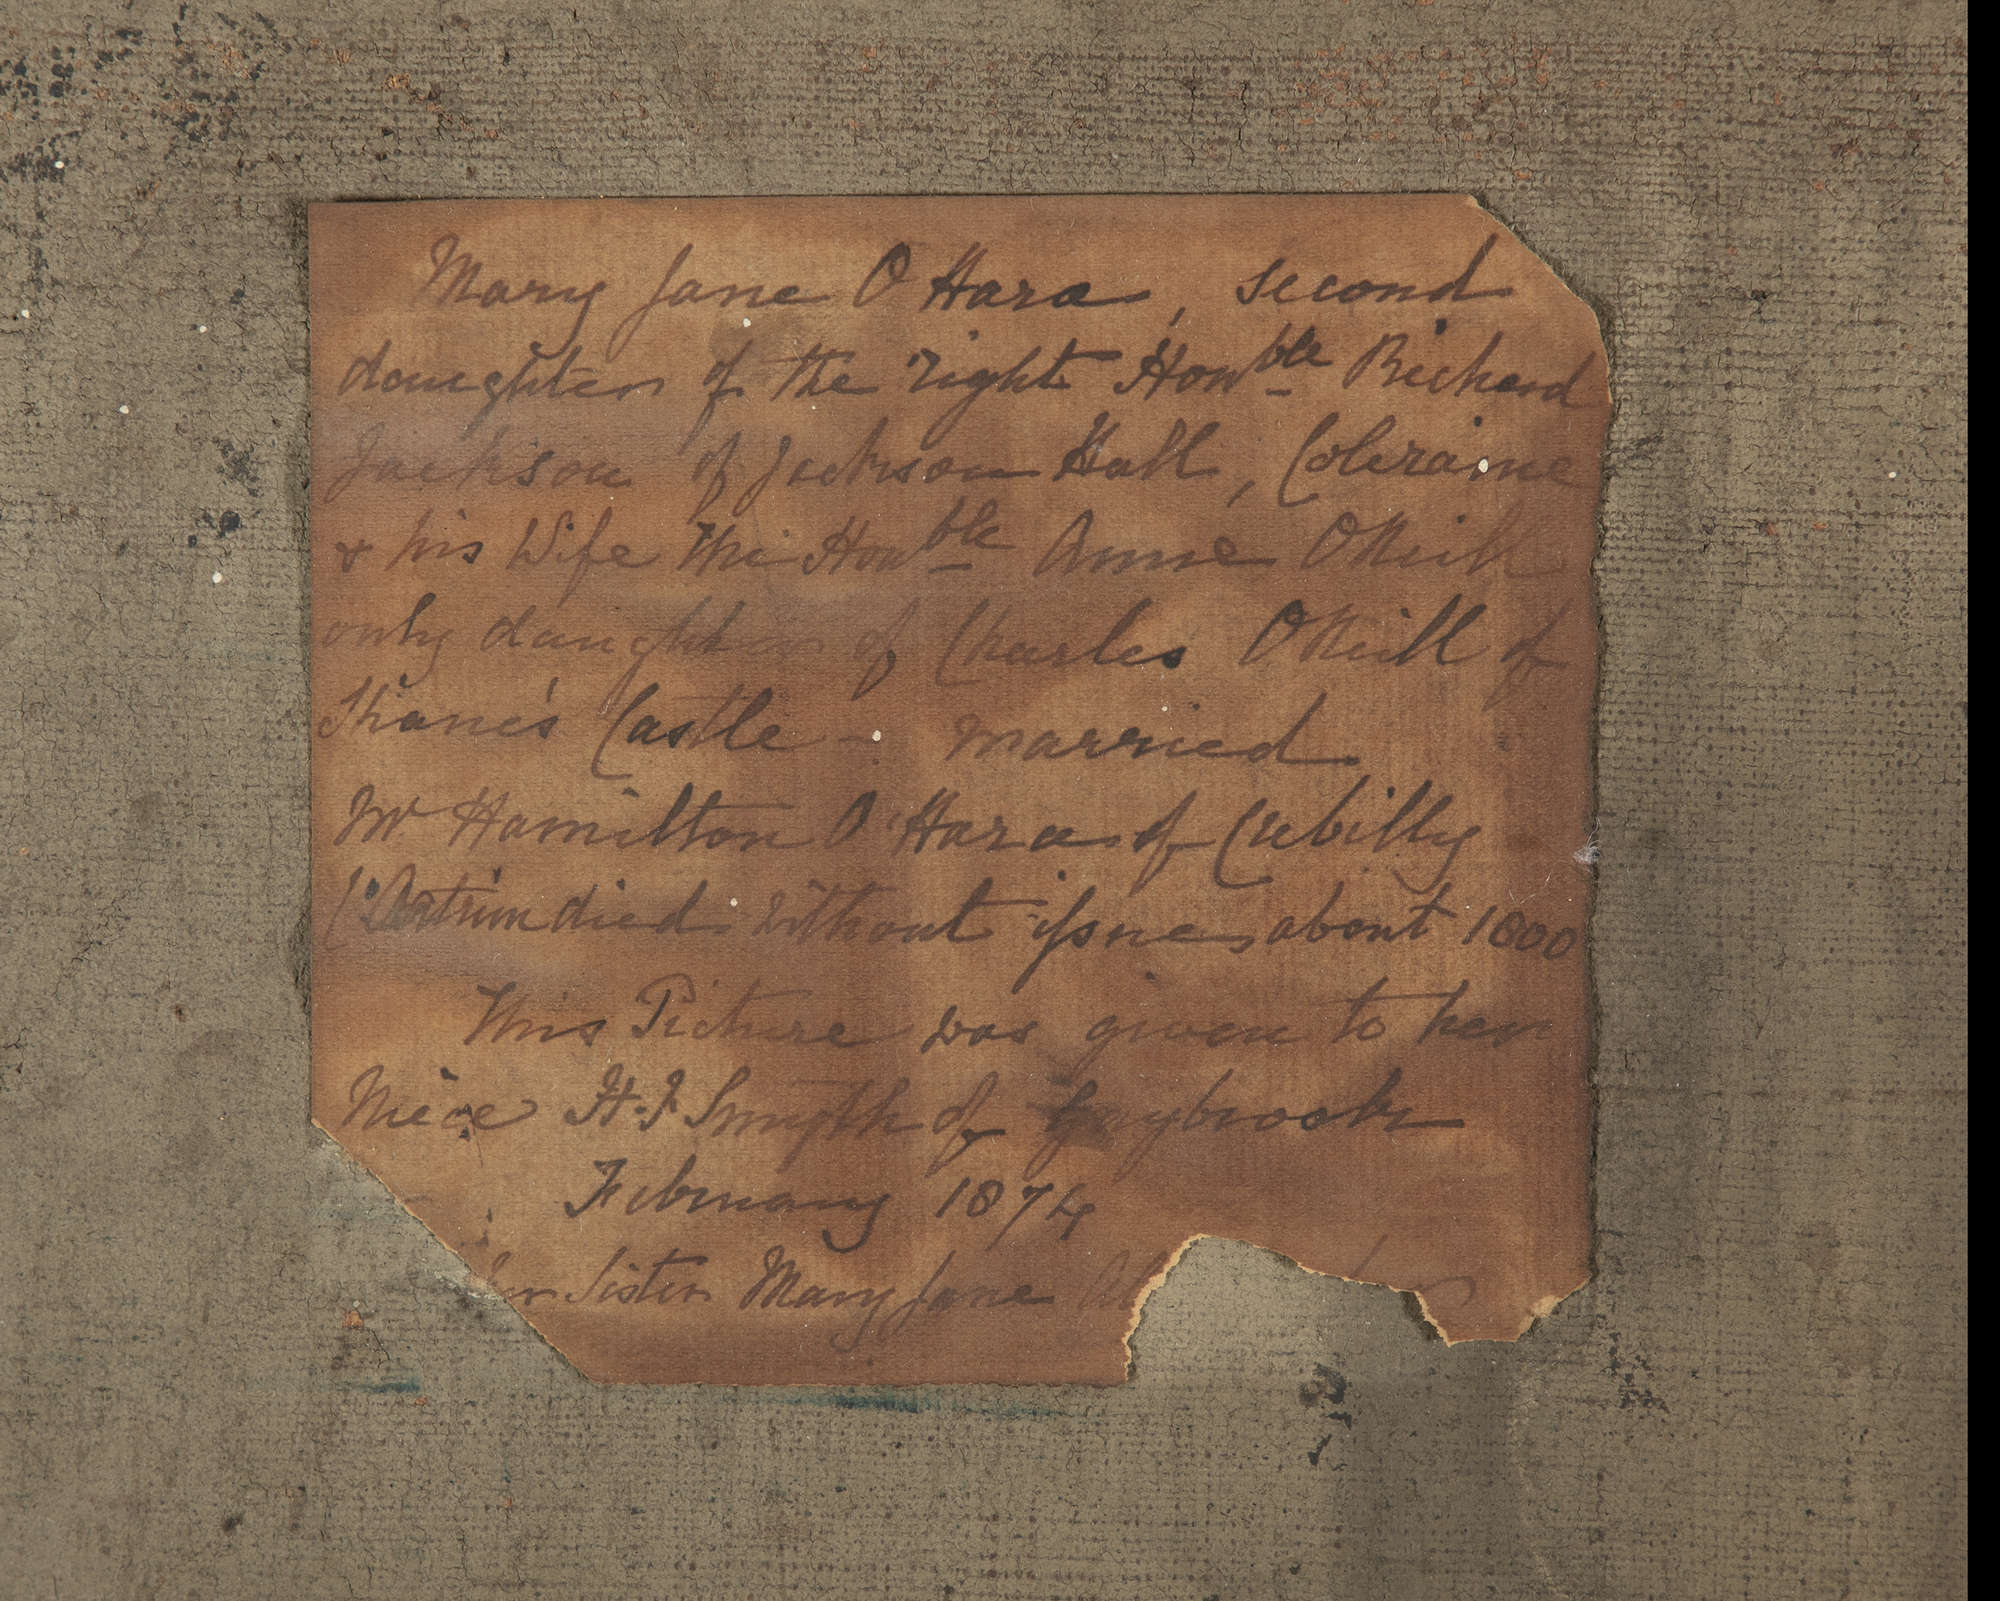 Mary Jane O Hara, second
daughter of the right Honble Richard
Jackson of Jackson Hall, Coleraine
& his Wife The Honble Anne ONeill
only daughter of Charles ONeill of
Shane's Castle - married
Mr Hamilton O'Hara of Crebilly
Co Antrim died without issue about 1800
This Picture was given to her
Niece H. J Smyth of Gaybrook
February 1874
her Sister Mary Jane